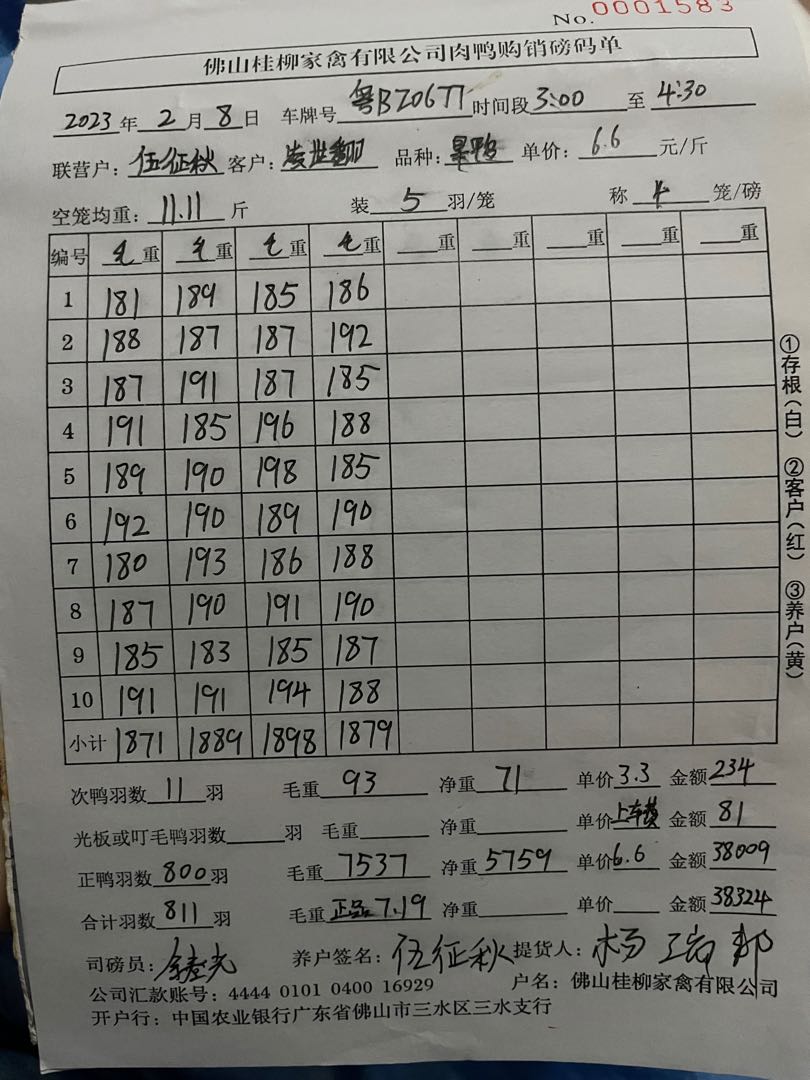 No. 0001583
佛山桂柳家禽有限公司肉鸭购销磅码单
2023年2月8日 车牌号 粤BZ06T1 时间段3:00 至 4:30
联营户：伍征秋 客户： 品种： 单价：6.6 元/斤
空笼均重：11.11 斤 装 5 羽/笼 称 4 笼/磅
编号 毛重 毛重 毛重 毛重 重 重 重 重 重
1 181 189 185 186
2 188 187 187 192
3 187 191 187 185
4 191 185 196 188
5 189 190 198 185
6 192 190 189 190
7 180 193 186 188
8 187 190 191 190
9 185 183 185 187
10 191 191 194 188
小计 1871 1889 1898 1879
次鸭羽数 11 羽 毛重 93 净重 71 单价 3.3 金额 234
光板或叮毛鸭羽数 羽 毛重 净重 单价 上车费 金额 81
正鸭羽数 800 羽 毛重 7537 净重 5759 单价 6.6 金额 38009
合计羽数 811 羽 毛重 正品7.19 净重 单价 金额 38324
司磅员： 养户签名：伍征秋 提货人：杨瑞邦
公司汇款账号：4444 0101 0400 16929 户名：佛山桂柳家禽有限公司
开户行：中国农业银行广东省佛山市三水区三水支行
①存根(白) ②客户(红) ③养户(黄)